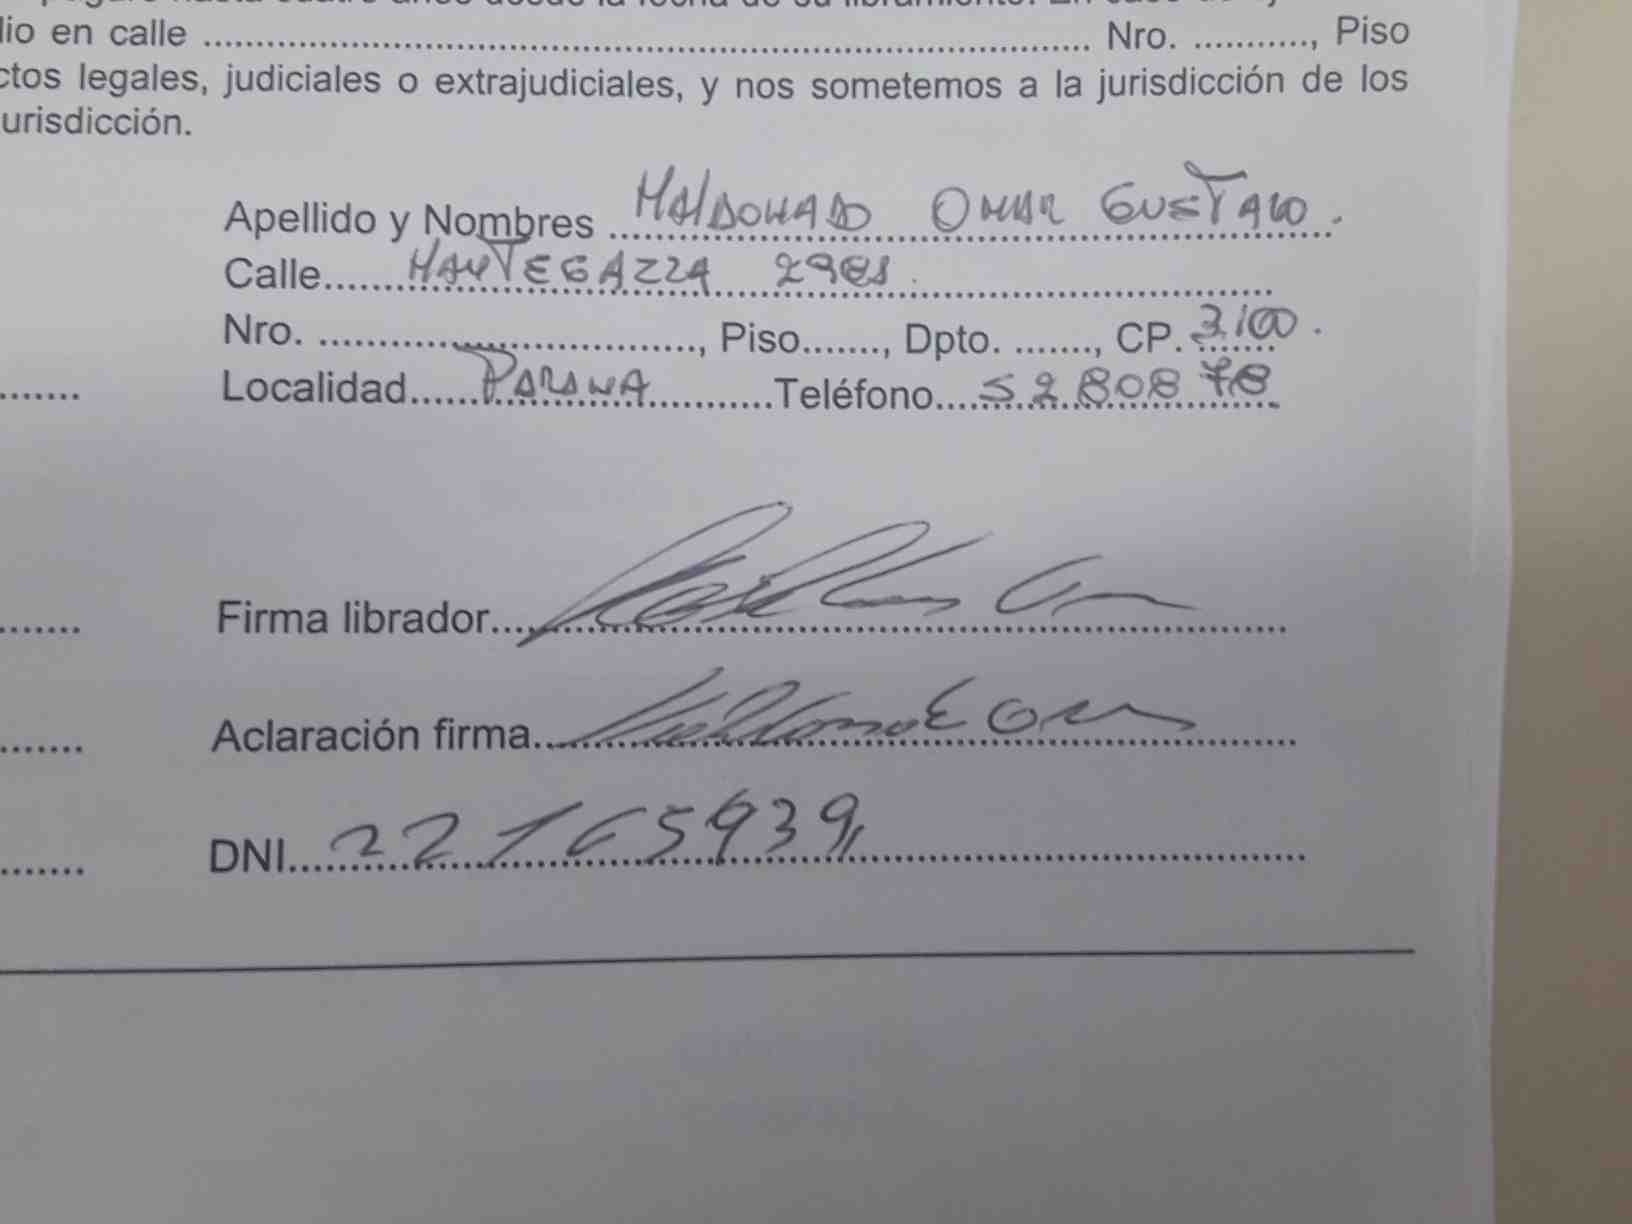 dio en calle ........................................................................ Nro. ..........., Piso
ctos legales, judiciales o extrajudiciales, y nos sometemos a la jurisdicción de los
urisdicción.
Apellido y Nombres MALDONADO OMAR GUSTAVO.
Calle......MANTEGAZZA
Nro. ..............................., Piso......., Dpto. ......., CP. 3100.
Localidad......PARANA...........Teléfono....5280878
Firma librador....
Aclaración firma..
DNI....22165939